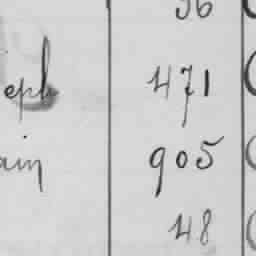 36
eph 471
ain 905
48